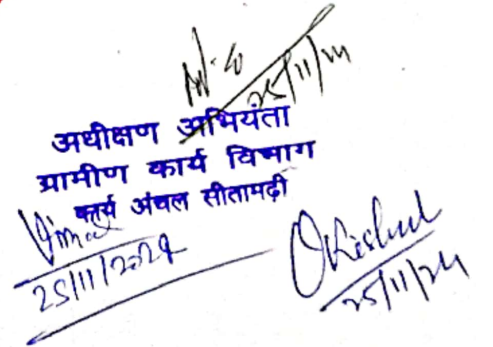 25/11/24
अधीक्षण अभियंता
ग्रामीण कार्य विभाग
कार्य अंचल सीतामढ़ी
25/11/2024
25/11/24